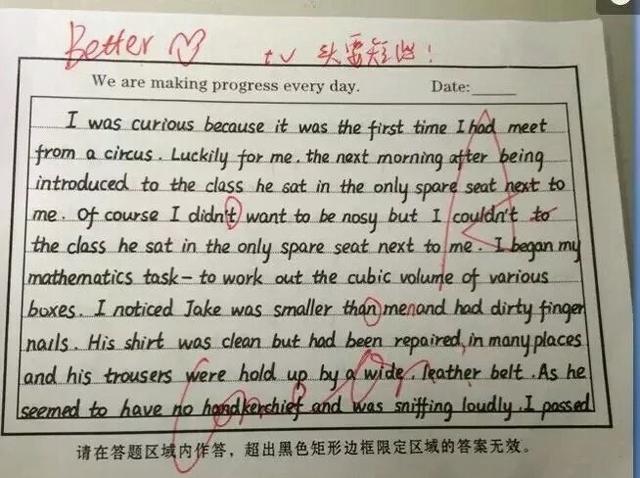 Better
tv 头要短些!
We are making progress every day. Date:
I was curious because it was the first time I had meet
from a circus. Luckily for me. the next morning after being
introduced to the class he sat in the only spare seat next to
me. Of course I didn't want to be nosy but I couldn't to
the class he sat in the only spare seat next to me. I began my
mathematics task- to work out the cubic volume of various
boxes. I noticed Jake was smaller than men and had dirty finger
nails. His shirt was clean but had been repaired, in many places
and his trousers were hold up by a wide, leather belt. As he
seemed to have no handkerchief and was sniffing loudly. I passed
请在答题区域内作答，超出黑色矩形边框限定区域的答案无效。